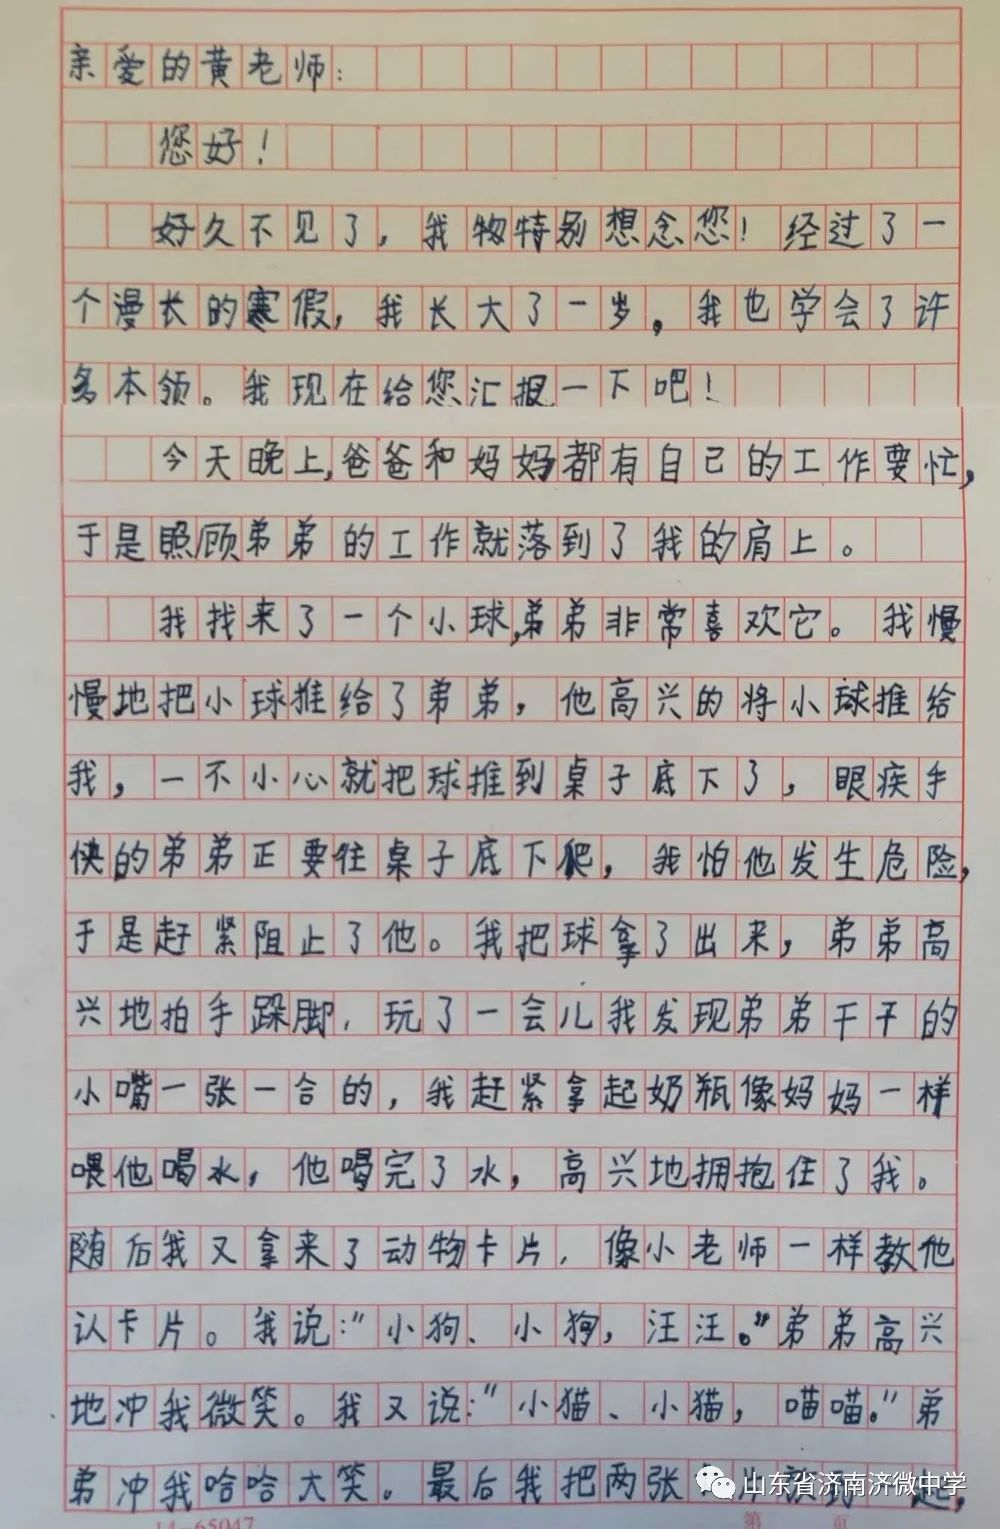 亲爱的黄老师:
您好!
好久不见了,我物特别想念您!经过了一
个漫长的寒假,我长大了一岁,我也学会了许
多本领。我现在给您汇报一下吧!
今天晚上,爸爸和妈妈都有自己的工作要忙,
于是照顾弟弟的工作就落到了我的肩上。
我找来了一个小球,弟弟非常喜欢它。我慢
慢地把小球推给了弟弟,他高兴的将小球推给
我,一不小心就把球推到桌子底下了,眼疾手
快的弟弟正要往桌子底下爬,我怕他发生危险,
于是赶紧阻止了他。我把球拿了出来,弟弟高
兴地拍手跺脚,玩了一会儿我发现弟弟干干的
小嘴一张一合的,我赶紧拿起奶瓶像妈妈一样
喂他喝水,他喝完了水,高兴地拥抱住了我。
随后我又拿来了动物卡片,像小老师一样教他
认卡片。我说:“小狗、小狗,汪汪。”弟弟高兴
地冲我微笑。我又说:“小猫、小猫,喵喵。”弟
弟冲我哈哈大笑。最后我把两张 起,
山东省济南济微中学
14-65047
第 页